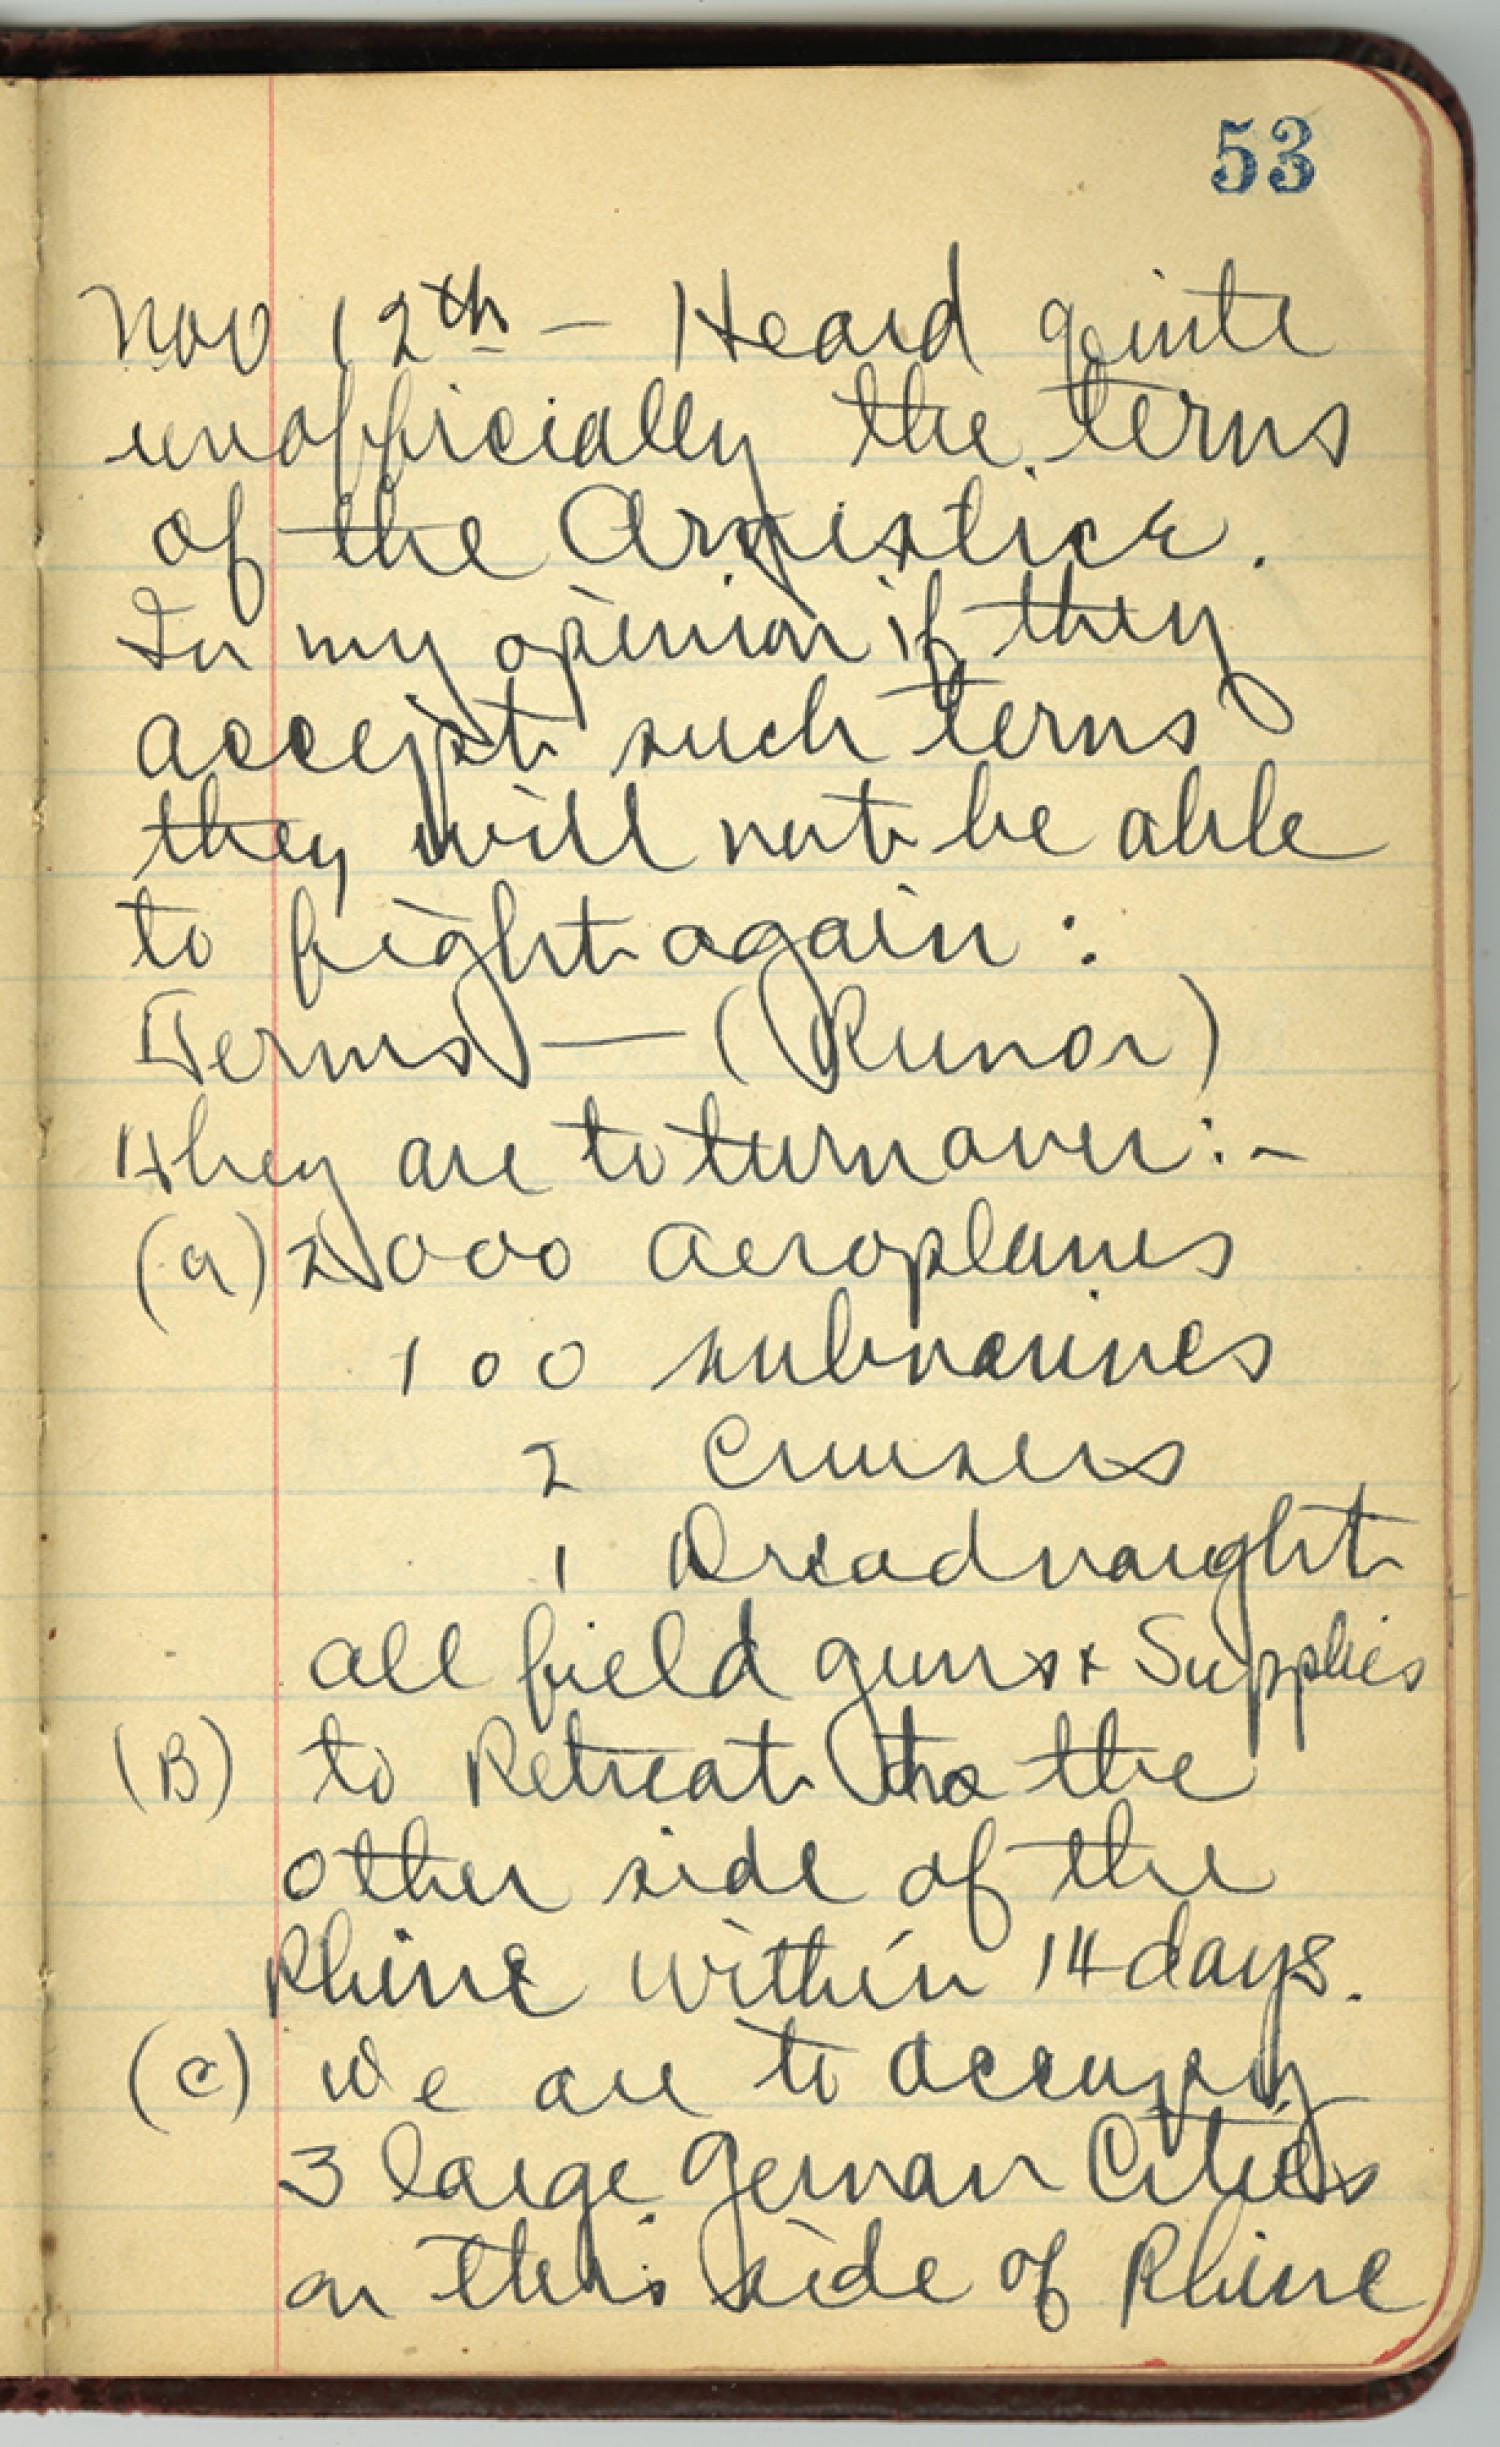 53
Nov 12th - Heard quite
unofficially the terms
of the Armistice.
In my opinion if they
accept such terms
they will not be able
to fight again :
Terms — (Rumor)
They are to turn over :-
(a) 2000 aeroplanes
100 submarines
2 Cruisers
1 Dreadnaught
all field guns + Supplies
(B) to Retreat to the
other side of the
Rhine within 14 days.
(C) We are to occupy
3 large German Cities
on this side of Rhine